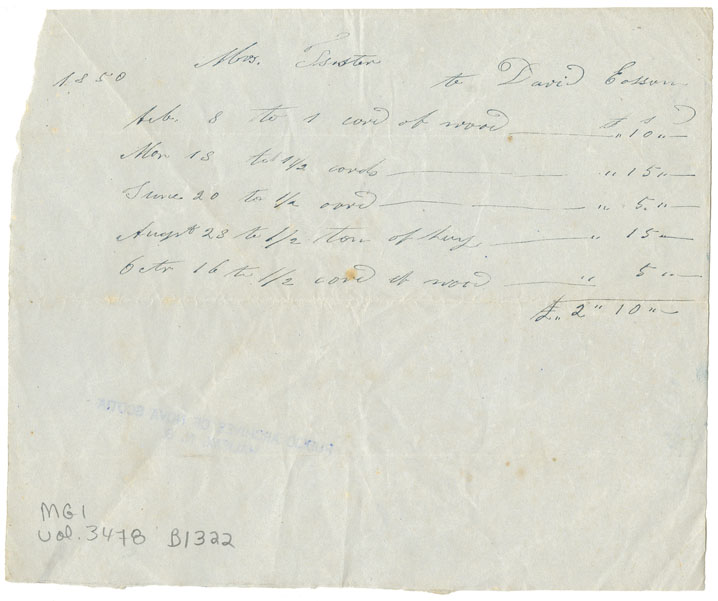 Mrs. Easson
1850 to David Easson
£ s D
Feb. 8 to 1 cord of wood " 10 "
Mar 18 to 1 1/2 cords " 15 "
June 20 to 1/2 cord " 5 "
Augst 23 to 1/2 ton of hay " 15
Octr 16 to 1/2 cord of wood " 5 "
£ " 2 " 10 "
PUBLIC ARCHIVES OF NOVA SCOTIA
HALIFAX, N. S.
MG1
Vol. 3478 B1322